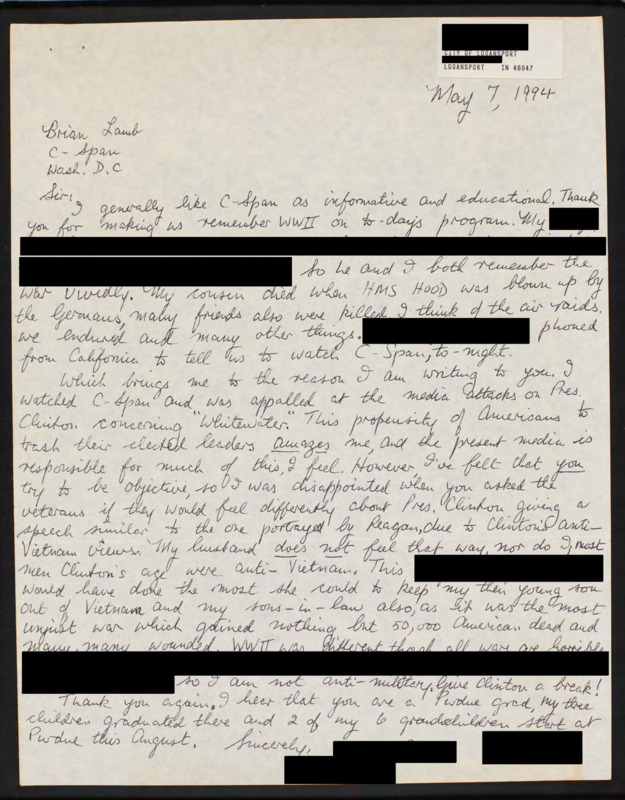 CITY OF LOGANSPORT
LOGANSPORT IN 46947
May 7, 1994
Brian Lamb
C-Span
Wash. D.C
Sir:
I generally like C-Span as informative and educational. Thank
you for making us remember WWII on to-days program. My
So he and I both remember the
war vividly. My cousin died when HMS HOOD was blown up by
the Germans, many friends also were killed. I think of the air raids,
we endured and many other things. phoned
from California to tell us to watch C-Span, to-night.
Which brings me to the reason I am writing to you. I
watched C-Span and was appalled at the media attacks on Pres.
Clinton concerning "Whitewater." This propensity of Americans to
trash their elected leaders amazes me, and the present media is
responsible for much of this, I feel. However, I've felt that you
try to be objective, so I was disappointed when you asked the
veterans if they would feel differently about Pres. Clinton giving a
speech similar to the one portrayed by Reagan, due to Clinton's anti-
Vietnam views. My husband does not feel that way, nor do I, most
men Clinton's age were anti-Vietnam. This
would have done the most she could to keep my then young son
out of Vietnam and my sons-in-law also, as it was the most
unjust war which gained nothing but 50,000 American dead and
many, many wounded. WWII was different though all war are horrible
so I am not anti-military. Give Clinton a break!
Thank you again. I hear that you are a Purdue grad, my three
children graduated there and 2 of my 6 grandchildren start at
Purdue this August. Sincerely,